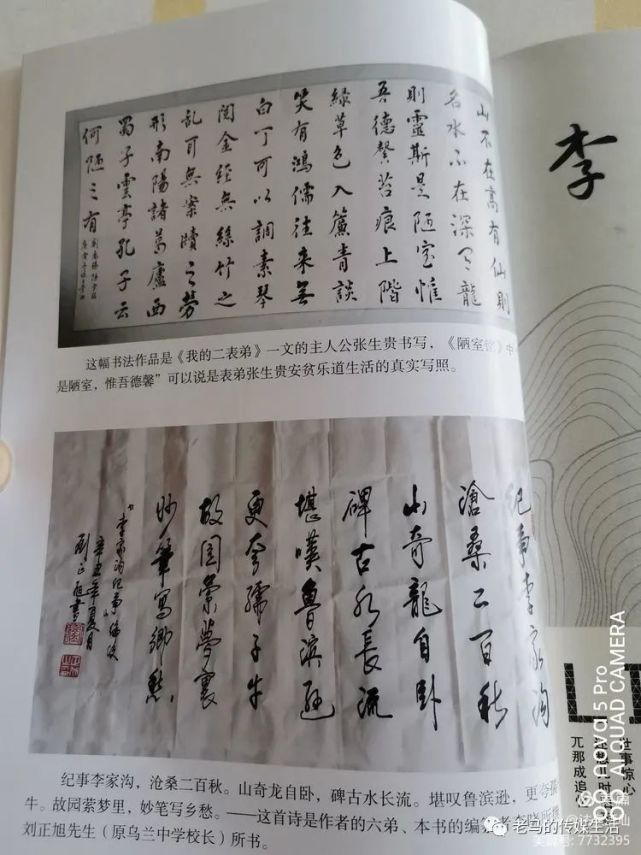 山不在高有仙則
名水不在深有龍
則靈斯是陋室惟
吾德馨苔痕上階
綠草色入簾青談
笑有鴻儒往來無
白丁可以調素琴
閱金經無絲竹之
亂耳無案牘之勞
形南陽諸葛廬西
蜀子雲亭孔子云
何陋之有
这幅书法作品是《我的二表弟》一文的主人公张生贵书写，《陋室铭》中
是陋室，惟吾德馨”可以说是表弟张生贵安贫乐道生活的真实写照。
纪事李家沟
滄桑二百秋
山奇龍自卧
碑古水長流
堪嘆魯濱遜
更夸孺子牛
故园萦夢裏
妙筆寫鄉愁
李家沟纪事
辛丑年夏月
劉正旭書
纪事李家沟，沧桑二百秋。山奇龙自卧，碑古水长流。堪叹鲁滨逊，更夸孺
牛。故园萦梦里，妙笔写乡愁。——这首诗是作者的六弟、本书的编
刘正旭先生（原乌兰中学校长）所书。
李
往事惊心
兀那成追
NOVA 5 Pro
AI QUAD CAMERA
老马的传媒生活
美篇号:7732395